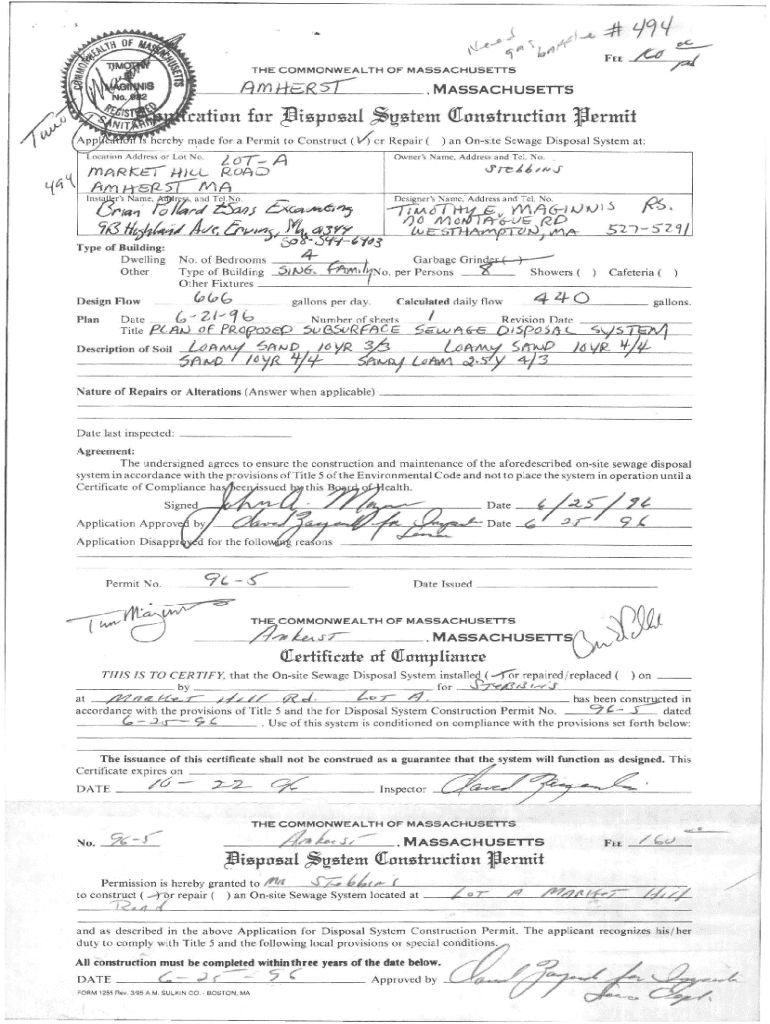 Need gas baffle # 494
FEE 160 00 pd
COMMONWEALTH OF MASSACHUSETTS
TIMOTHY
MAGINNIS
No. 982
REGISTERED
SANITARIAN
THE COMMONWEALTH OF MASSACHUSETTS
AMHERST, MASSACHUSETTS
Application for Disposal System Construction Permit
Application is hereby made for a Permit to Construct (✓) or Repair ( ) an On-site Sewage Disposal System at:
Location Address or Lot No. LOT-A
MARKET HILL ROAD
494
AMHERST MA
Owner's Name, Address and Tel. No.
STEBBINS
Installer's Name, Address, and Tel. No.
Brian Pollard & Sons Excavating
963 Highland Ave, Erving, Ma 01344
508-544-6403
Designer's Name, Address and Tel. No.
TIMOTHY E. MAGINNIS RS.
70 MONTAGUE RD
WESTHAMPTON, MA 527-5291
Type of Building:
Dwelling No. of Bedrooms 4 Garbage Grinder ( )
Other Type of Building SING. FAMILY No. per Persons 8 Showers ( ) Cafeteria ( )
Other Fixtures
Design Flow 666 gallons per day. Calculated daily flow 440 gallons.
Plan Date 6-21-96 Number of sheets 1 Revision Date
Title PLAN OF PROPOSED SUBSURFACE SEWAGE DISPOSAL SYSTEM
Description of Soil LOAMY SAND, 10YR 3/3 LOAMY SAND 10YR 4/4
SAND 10YR 4/4 SANDY LOAM 2.5Y 4/3
Nature of Repairs or Alterations (Answer when applicable)
Date last inspected:
Agreement:
The undersigned agrees to ensure the construction and maintenance of the aforedescribed on-site sewage disposal
system in accordance with the provisions of Title 5 of the Environmental Code and not to place the system in operation until a
Certificate of Compliance has been issued by this Board of Health.
Signed John A. Date 6/25/96
Application Approved by David for Date 6 25 96
Application Disapproved for the following reasons
Permit No. 96-5 Date Issued
Tim Maginnis
THE COMMONWEALTH OF MASSACHUSETTS
Amherst, MASSACHUSETTS
Certificate of Compliance
THIS IS TO CERTIFY, that the On-site Sewage Disposal System installed (✓) or repaired/replaced ( ) on
by for STEBBINS
at Market Hill Rd. LOT A. has been constructed in
accordance with the provisions of Title 5 and the for Disposal System Construction Permit No. 96-5 dated
6-25-96. Use of this system is conditioned on compliance with the provisions set forth below:
The issuance of this certificate shall not be construed as a guarantee that the system will function as designed. This
Certificate expires on
DATE 10-22 96 Inspector David
THE COMMONWEALTH OF MASSACHUSETTS
No. 96-5 Amherst, MASSACHUSETTS FEE 160
Disposal System Construction Permit
Permission is hereby granted to Mr Stebbins
to construct (✓) or repair ( ) an On-site Sewage System located at LOT A MARKET Hill
Road
and as described in the above Application for Disposal System Construction Permit. The applicant recognizes his/her
duty to comply with Title 5 and the following local provisions or special conditions.
All construction must be completed within three years of the date below.
DATE 6-25-96 Approved by David for
FORM 1255 Rev. 3/95 A.M. SULKIN CO. - BOSTON, MA